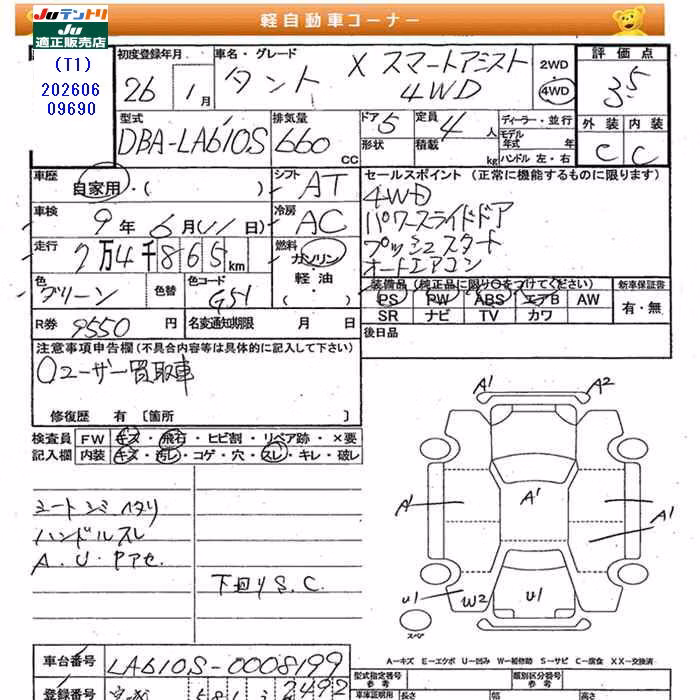 Juテントリ
Ju
適正販売店
(T1)
202606
09690
軽自動車コーナー
初度登録年月
26 1月
車名・グレード
タント X スマートアシスト
4WD
2WD
4WD
評価点
3.5
外装 内装
C C
型式
DBA-LA610S
排気量
660 CC
ドア 5
形状
定員 4 人
積載 kg
ディーラー・並行
モデル
年式 年
ハンドル 左・右
車歴
自家用・( )
シフト
AT
車検
9年6月(11日)
冷房
AC
走行
2万4千865km
燃料
ガソリン
軽油
( )
色
グリーン
色替
色コード
G51
R券 9550 円
名変通知期限 月 日
セールスポイント (正常に機能するものに限ります)
4WD
パワースライドドア
プッシュスタート
オートエアコン
装備品(純正品に限り〇をつけてください)
PS PW ABS エアB AW
SR ナビ TV カワ
新車保証書
有・無
後日品
注意事項申告欄(不具合内容等は具体的に記入して下さい)
〇ユーザー買取車
修復歴 有 [箇所 ]
検査員
記入欄
FW キズ・飛石・ヒビ割・リペア跡・×要
内装 キズ・汚レ・コゲ・穴・スレ・キレ・破レ
シートシミヘタリ
ハンドルスレ
A.U.Pアセ.
下回りS.C.
A1 A2
A1 A1 A1
U1 W2 U1
スペア
A-キズ E-エクボ U-凹み W-補修跡 S-サビ C-腐食 XX-交換済
車台番号
LA610S-0008199
登録番号
581 2492
型式指定番号
参考
類別区分番号
参考
車庫証明用
長さ
幅
高さ